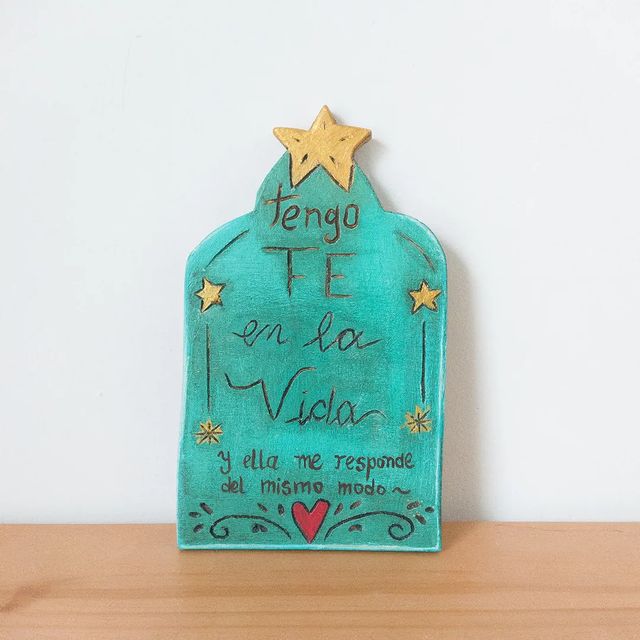 tengo
FE
en la
Vida
y ella me responde
del mismo modo~